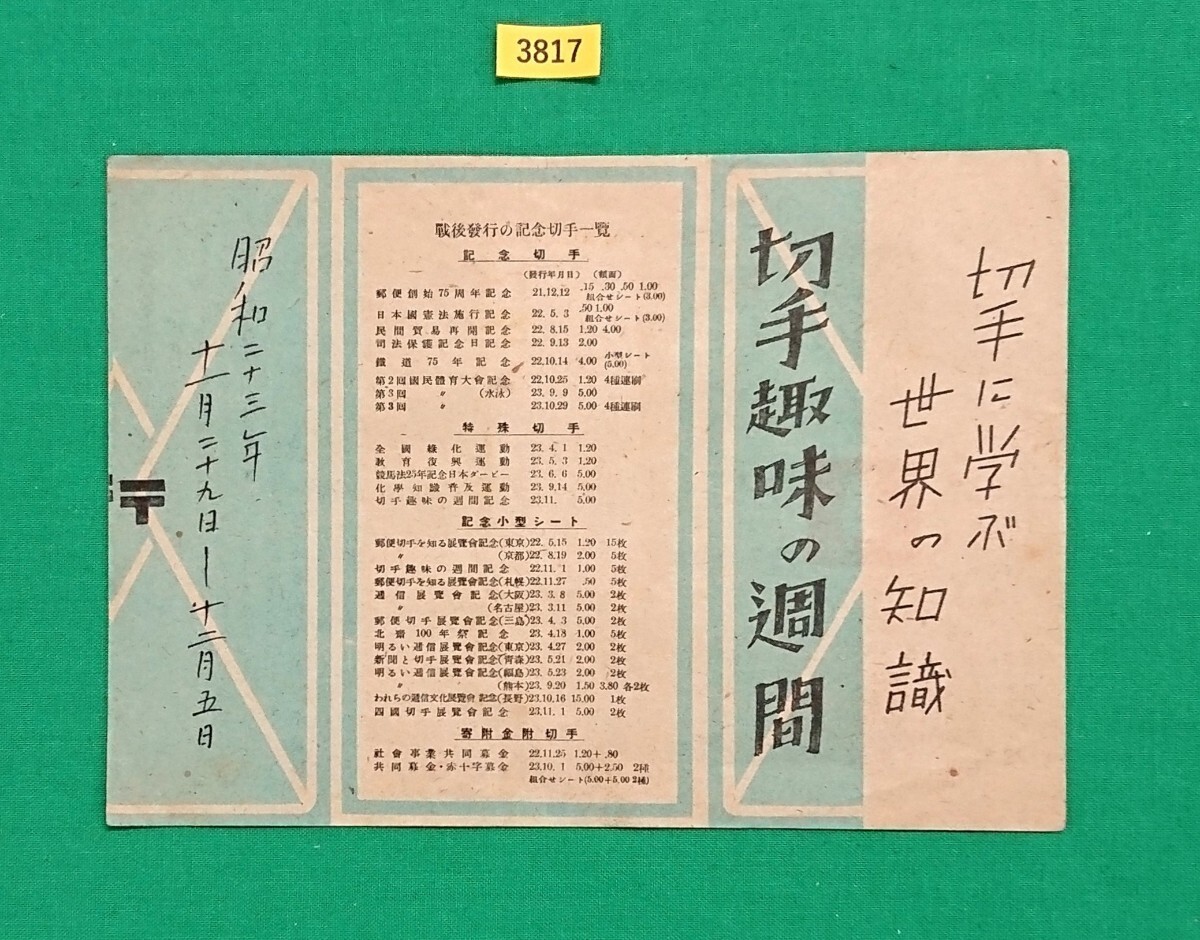 3817
切手に学ぶ
世界の知識
切手趣味の週間
戰後發行の記念切手一覽
記念切手
(發行年月日) (額面)
郵便創始75周年記念 21.12.12 .15 .30 .50 1.00
組合せシート(3.00)
日本國憲法施行記念 22. 5. 3 .50 1.00
組合せシート(3.00)
民間貿易再開記念 22. 8.15 1.20 4.00
司法保護記念日記念 22. 9.13 2.00
鐵道75年記念 22.10.14 4.00 小型シート
(5.00)
第2回國民體育大會記念 22.10.25 1.20 4種連刷
第3回 〃 (水泳) 23. 9. 9 5.00
第3回 〃 23.10.29 5.00 4種連刷
特殊切手
全國綠化運動 23. 4. 1 1.20
教育復興運動 23. 5. 3 1.20
競馬法25年記念日本ダービー 23. 6. 6 5.00
化學知識普及運動 23. 9.14 5.00
切手趣味の週間記念 23.11. 5.00
記念小型シート
郵便切手を知る展覽會記念(東京) 22. 5.15 1.20 15枚
〃 (京都) 22. 8.19 2.00 5枚
切手趣味の週間記念 22.11. 1 1.00 5枚
郵便切手を知る展覽會記念(札幌) 22.11.27 .50 5枚
遞信展覽會記念(大阪) 23. 3. 8 5.00 2枚
〃 (名古屋) 23. 3.11 5.00 2枚
郵便切手展覽會記念(三島) 23. 4. 3 5.00 2枚
北齋100年祭記念 23. 4.18 1.00 5枚
明るい遞信展覽會記念(東京) 23. 4.27 2.00 2枚
新聞と切手展覽會記念(青森) 23. 5.21 2.00 2枚
明るい遞信展覽會記念(福島) 23. 5.23 2.00 2枚
〃 (熊本) 23. 9.20 1.50 3.80 各2枚
われらの遞信文化展覽會記念(長野) 23.10.16 15.00 1枚
四國切手展覽會記念 23.11. 1 5.00 2枚
寄附金附切手
社會事業共同募金 22.11.25 1.20+ .80
共同募金・赤十字募金 23.10. 1 5.00+2.50 2種
組合せシート(5.00+5.00 2種)
昭和二十三年
十一月二十九日ー十二月五日
〒